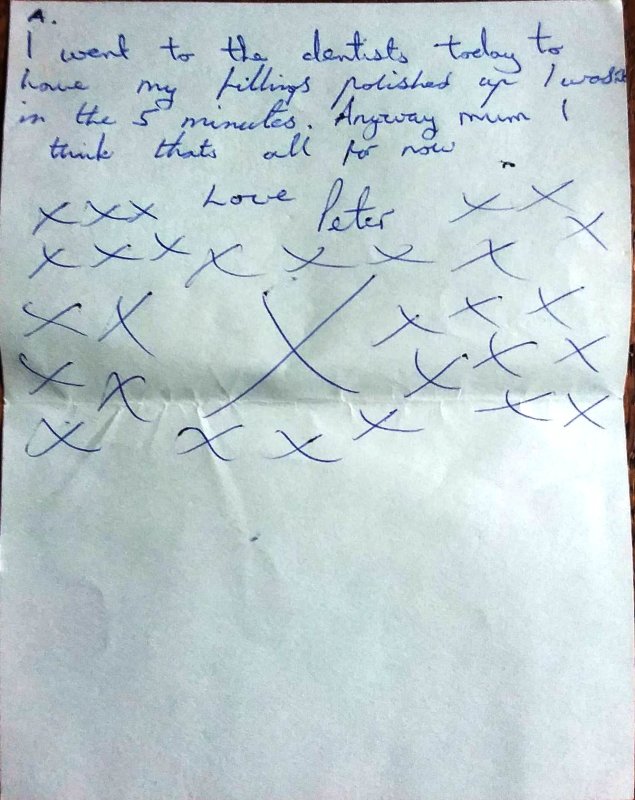 A.
I went to the dentists today to
have my fillings polished up I was
in the 5 minutes. Anyway mum I
think thats all for now
Love Peter
x x x x x x
x x x x x x x
x x X x x x
x x x x x
x x x x x x